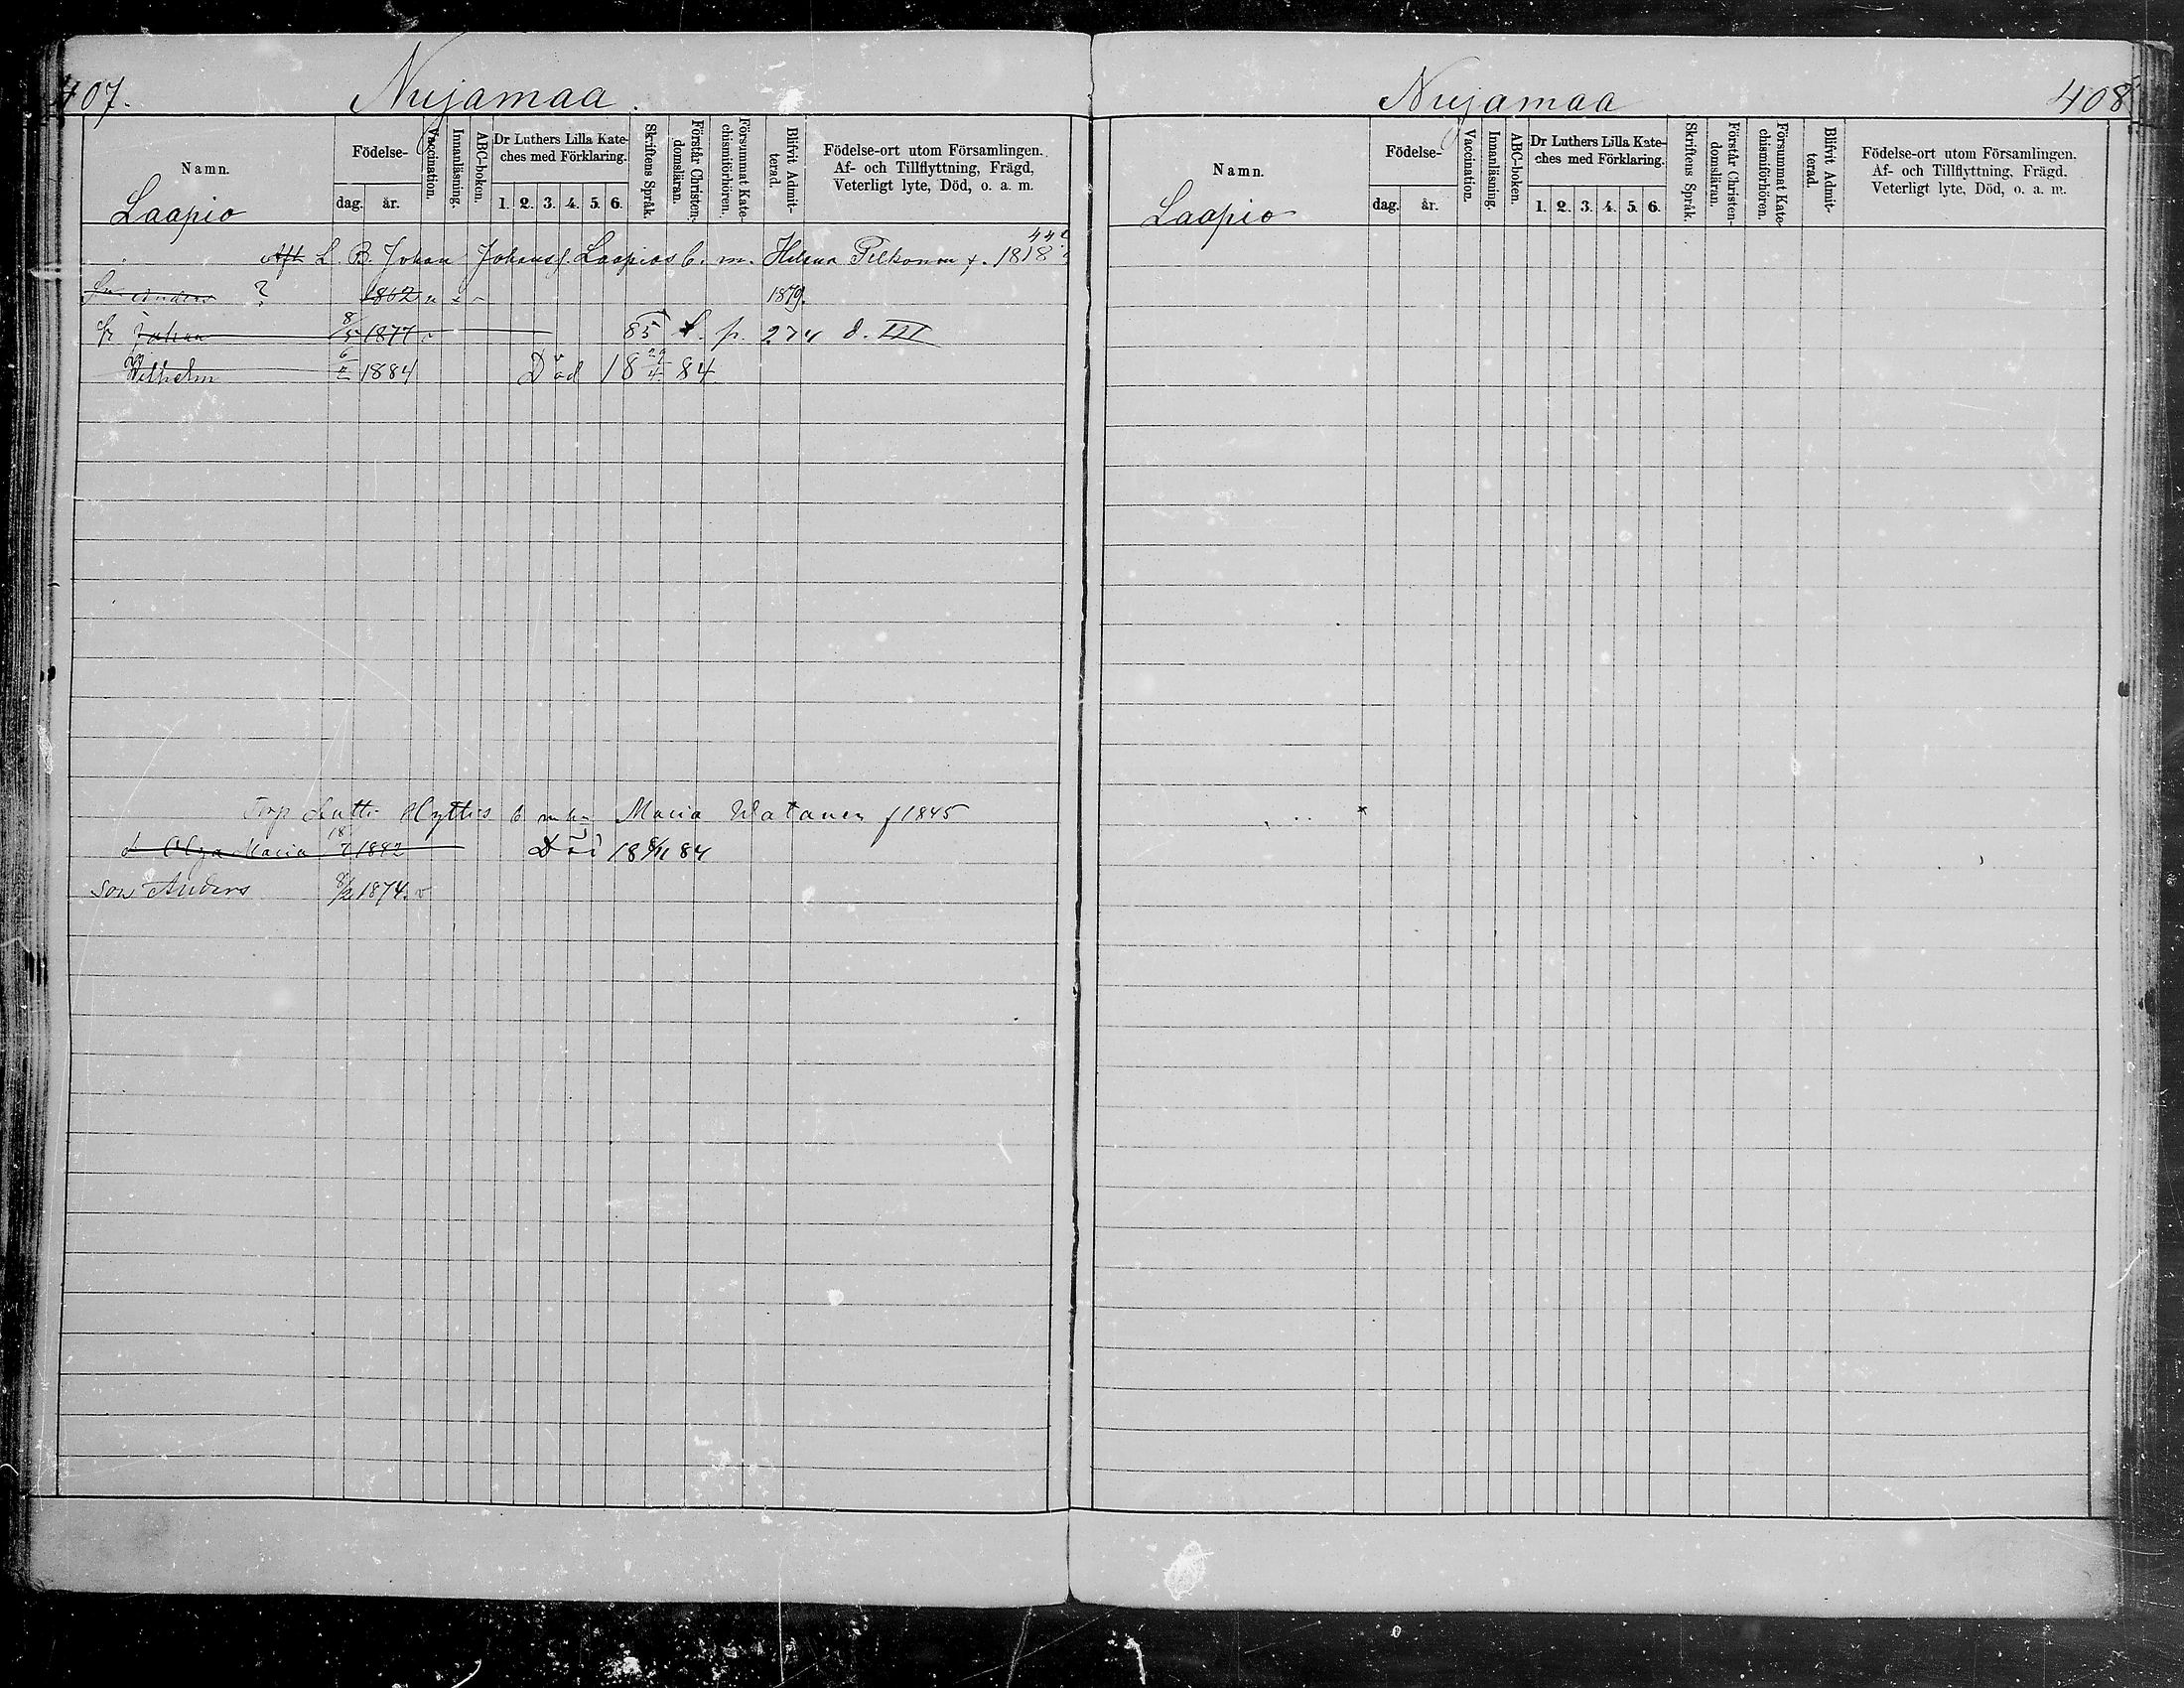 407.
Nujamaa.
Namn.
Födelse-
dag. år.
Vaccination.
Innanläsning.
ABC-boken.
Dr Luthers Lilla Kate-
ches med Förklaring.
1. 2. 3. 4. 5. 6.
Skriftens Språk.
Förstår Christen-
domsläran.
Försummat Kate-
chismiförhören.
Blifvit Admit-
terad.
Födelse-ort utom Församlingen.
Af- och Tillflyttning, Frägd,
Veterligt lyte, Död, o. a. m.
Laapio
Afl. L. B. Johan Johansf. Laapias b. m. Helena Pelkonen f. 1818
Anders ? 1862 1879.
Johan 8/5 1877 v 85 f. p. 274 d. III
Wilhelm 6/2 1884 Död 18 29/4 84
Torp Antti Hyttis b Maria Watanen f 1845
d Olga Maria 18/7 1842 Död 18 8/11 84
son Anders 8/2 1874 v
Nujamaa
408
Namn.
Födelse-
dag. år.
Vaccination.
Innanläsning.
ABC-boken.
Dr Luthers Lilla Kate-
ches med Förklaring.
1. 2. 3. 4. 5. 6.
Skriftens Språk.
Förstår Christen-
domsläran.
Försummat Kate-
chismiförhören.
Blifvit Admit-
terad.
Födelse-ort utom Församlingen.
Af- och Tillflyttning, Frägd.
Veterligt lyte, Död, o. a. m.
Laapio